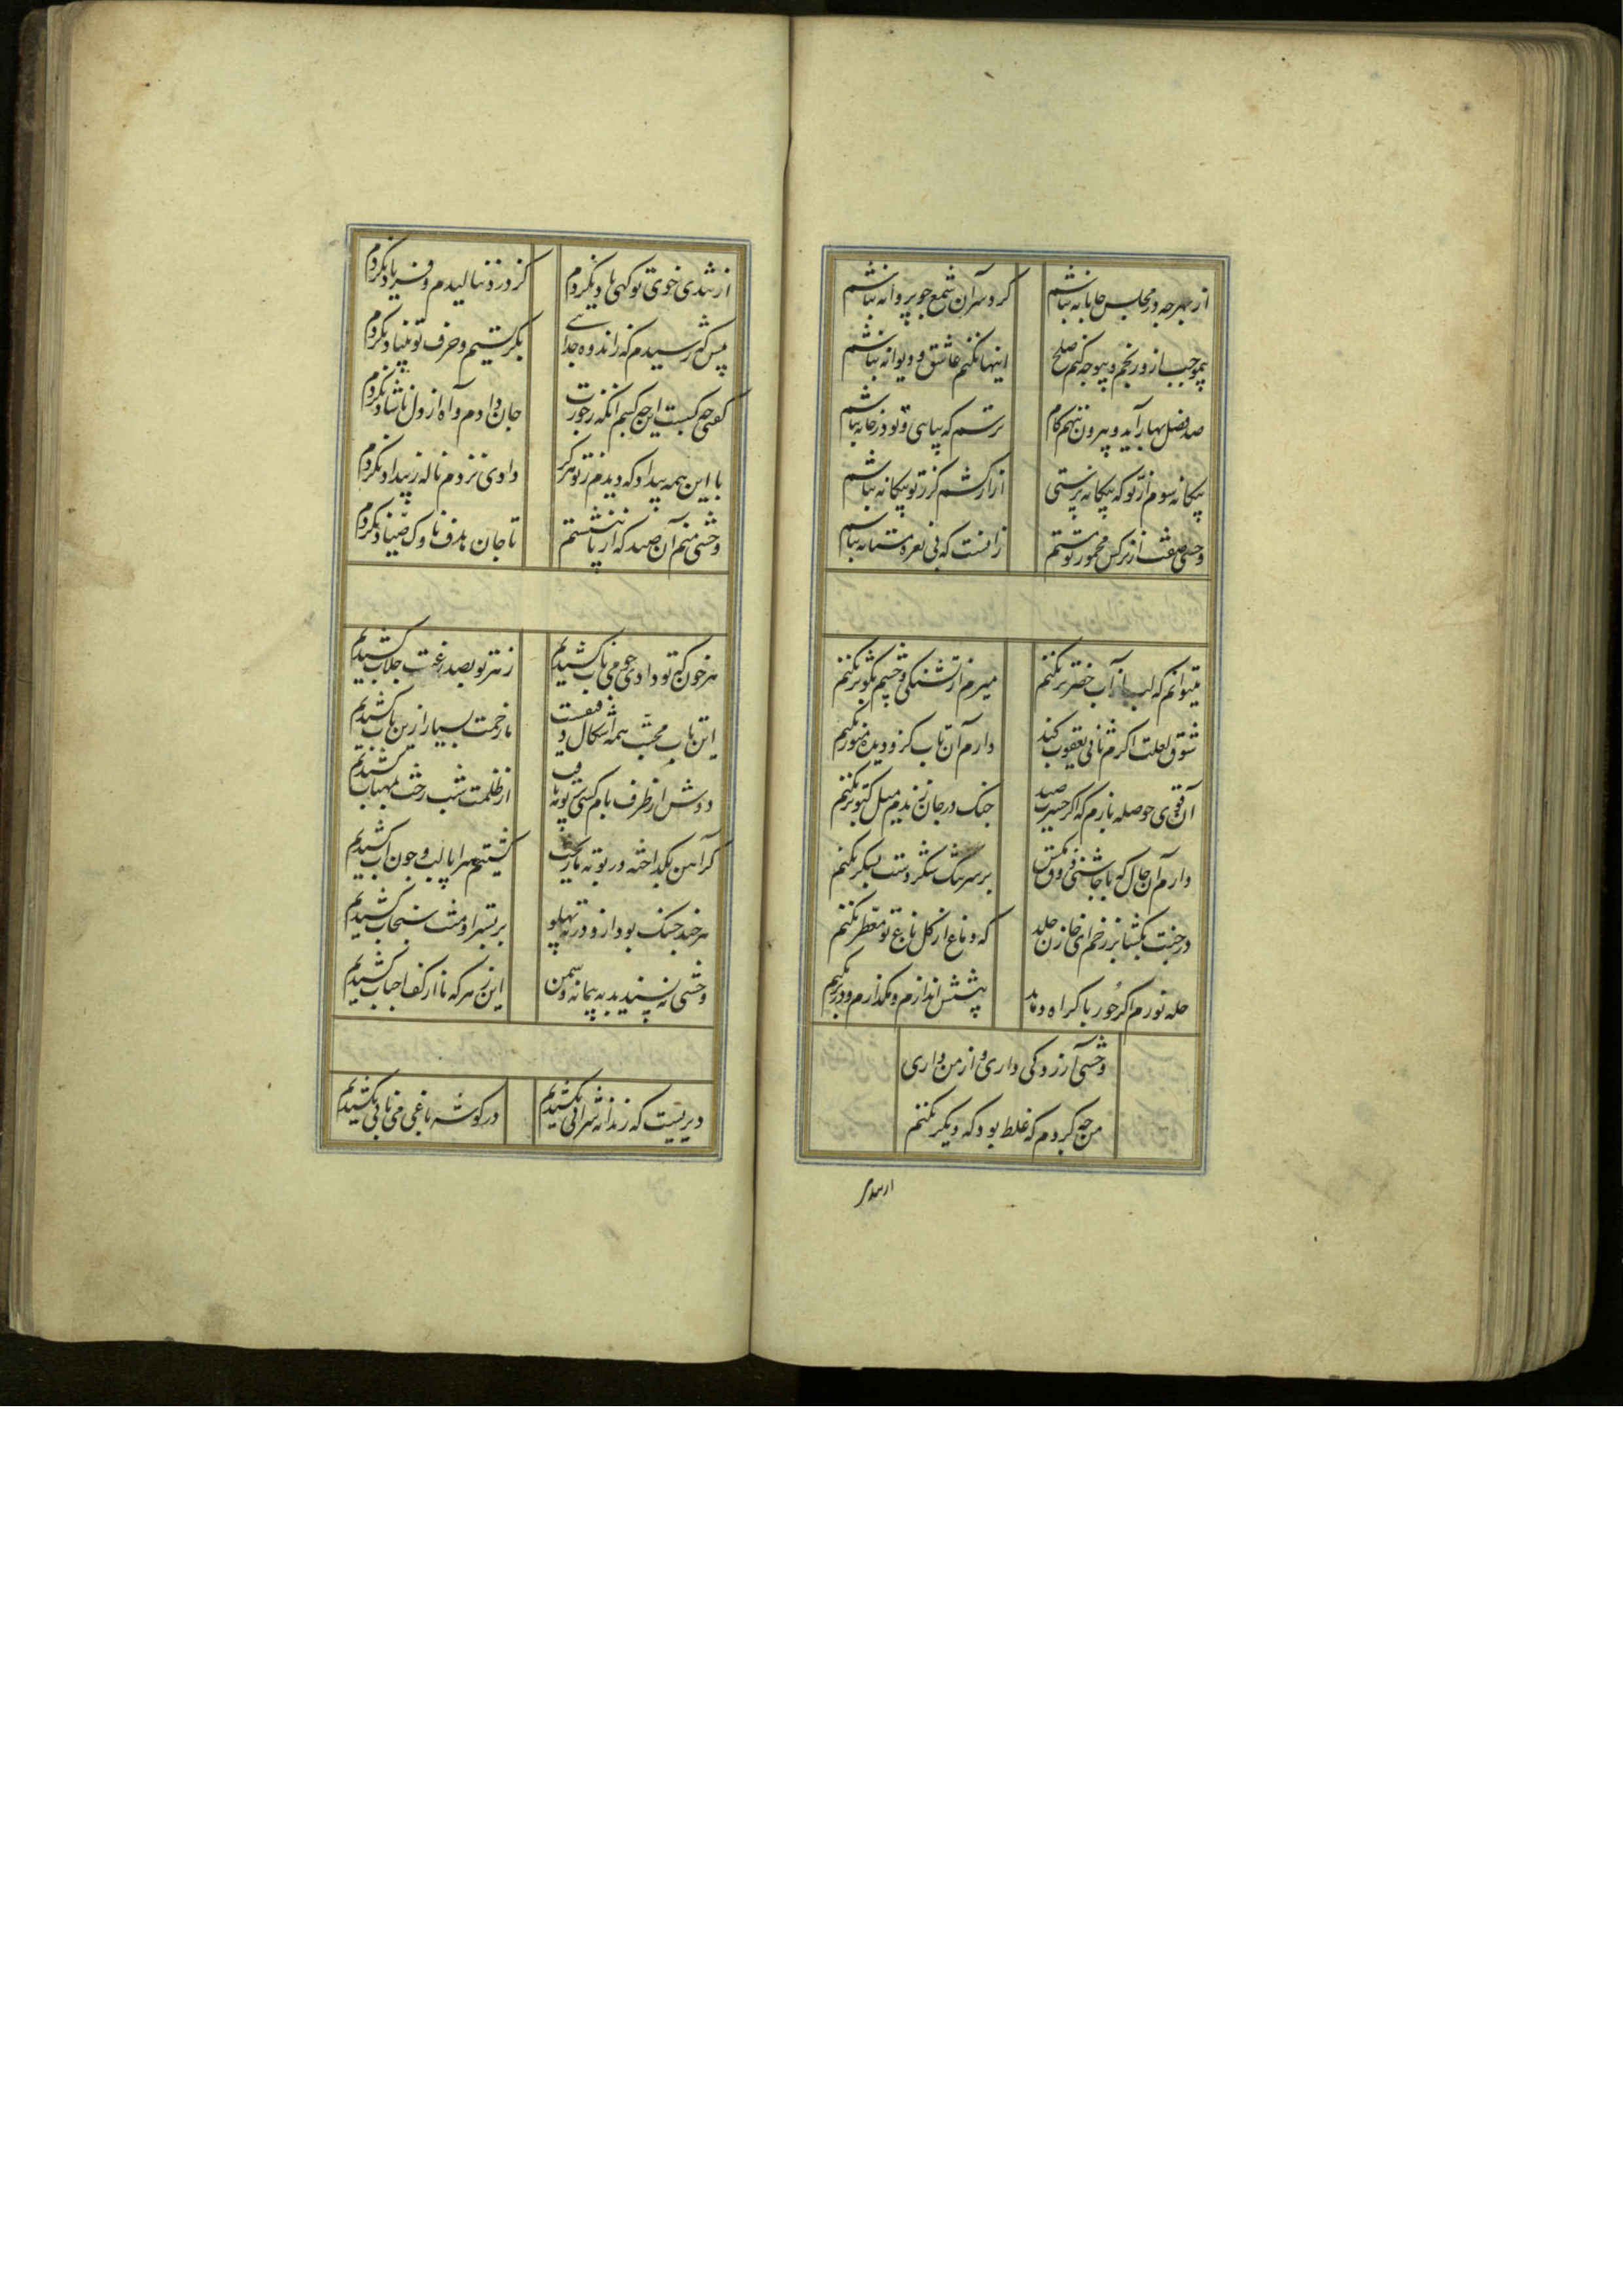 از بهر چه در مجلس جانانه نباشم گرد سر آن شمع چو پروانه نباشم
بیموجب ازو رنجم و بیوجه کنم صلح اینها نکنم عاشق و دیوانه نباشم
صد فصل بهار آید و بیرون ننهم کام ترسم که بیایی تو و در خانه نباشم
بیکانه شوم از تو که بیکانه پرستی آزار کشم کر ز تو بیکانه نباشم
وحشی صفت از نرکس مخمور تو مستم زانست که بی نعره مستانه نباشم
میتوانم که لب از آب خضر تر نکنم میرم از تشنکی و چشم بکوثر نکنم
شوق یعلت اکرم ثانی یعقوب کند دارم آن تاب کزو دیده منور نکنم
آن قوی حوصله بازم که اکر حسرت صید چنک در جان زندم میل کبوتر نکنم
دارم آن حال که با چاشنی ذوق مکس بر سر تنک شکر دست بسکر نکنم
در جنت بکشا بر رخم ای خازن خلد که دماغ از کل باغ تو معطر نکنم
حله نورم اکر حور باکراه دهد پیشش اندازم و نکذارم و در بر نکنم
وحشی آزردکی داری و از من داری
من چه کردم که غلط بود که دیکر نکنم
از تندی
از تندی خوی تو کهی یاد نکردم کز درد ننالیدم و فریاد نکردم
پیش که رسیدم که ز اندوه جدایی نکریستم و حرف تو بنیاد نکردم
کفتی چه کست این چه کسم آنکه ز جورت جان دادم و آه از دل ناشاد نکردم
با این همه بیداد که دیدم ز تو هرکز دادی نزدم ناله ز بیداد نکردم
وحشی منم آن صید که از پا ننشستم تا جان هدف ناوک صیاد نکردم
هر خون که تو دادی چو می ناب کشیدیم زهر تو بصد رغبت جلاب کشیدیم
این باب محبت همه اشکال دقیقست ما زحمت بسیار ازین باب کشیدیم
دوش از طرف بام کسی پرتو مهتاب از ظلمت شب رخت بمهتاب کشیدیم
کر آهن بکداخته در بوته ما ریخت کشتیم سراپا لب و چون آب کشیدیم
هر چند جنک بود ازو در ته پهلو بر بستر او منت سنجاب کشیدیم
وحشی نپسندید به پیمانه دشمن این زهر که ما از کف احباب کشیدیم
دیریست که رندانه شرابی نکشیدیم در کوشه باغی می نابی نکشیدیم